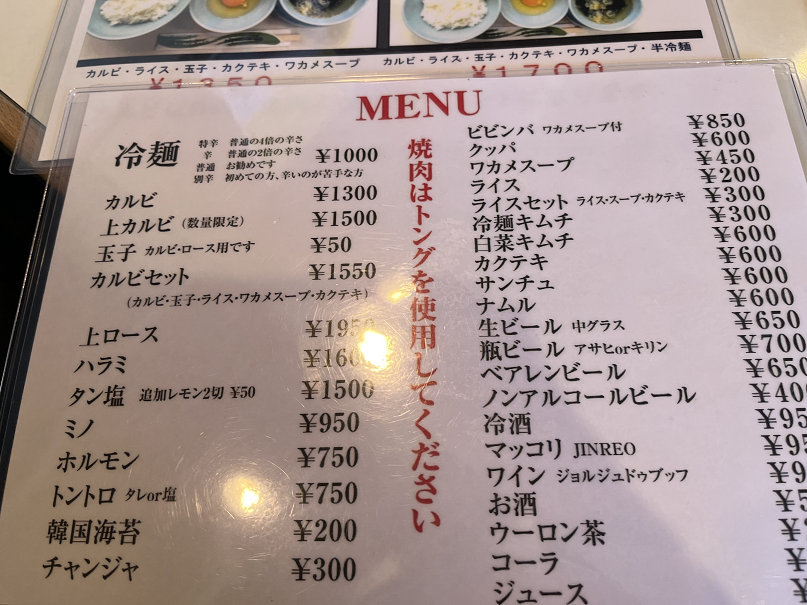 カルビ・ライス・玉子・カクテキ・ワカメスープ
¥1350
カルビ・ライス・玉子・カクテキ・ワカメスープ・半冷麺
¥1700
MENU
冷麺 ¥1000
特辛 普通の4倍の辛さ
辛 普通の2倍の辛さ
普通 お勧めです
別辛 初めての方、辛いのが苦手な方
カルビ ¥1300
上カルビ（数量限定） ¥1500
玉子 カルビ・ロース用です ¥50
カルビセット ¥1550
（カルビ・玉子・ライス・ワカメスープ・カクテキ）
上ロース ¥1950
ハラミ
タン塩 追加レモン2切 ¥50 ¥1500
ミノ ¥950
ホルモン ¥750
トントロ タレor塩 ¥750
韓国海苔 ¥200
チャンジャ ¥300
焼肉はトングを使用してください
ビビンバ ワカメスープ付 ¥850
クッパ ¥600
ワカメスープ ¥450
ライス ¥200
ライスセット ライス・スープ・カクテキ ¥300
冷麺キムチ ¥300
白菜キムチ ¥600
カクテキ ¥600
サンチュ ¥600
ナムル ¥600
生ビール 中グラス ¥650
瓶ビール アサヒorキリン ¥700
ベアレンビール ¥650
ノンアルコールビール
冷酒
マッコリ JINREO
ワイン ジョルジュドゥブッフ
お酒
ウーロン茶
コーラ
ジュース